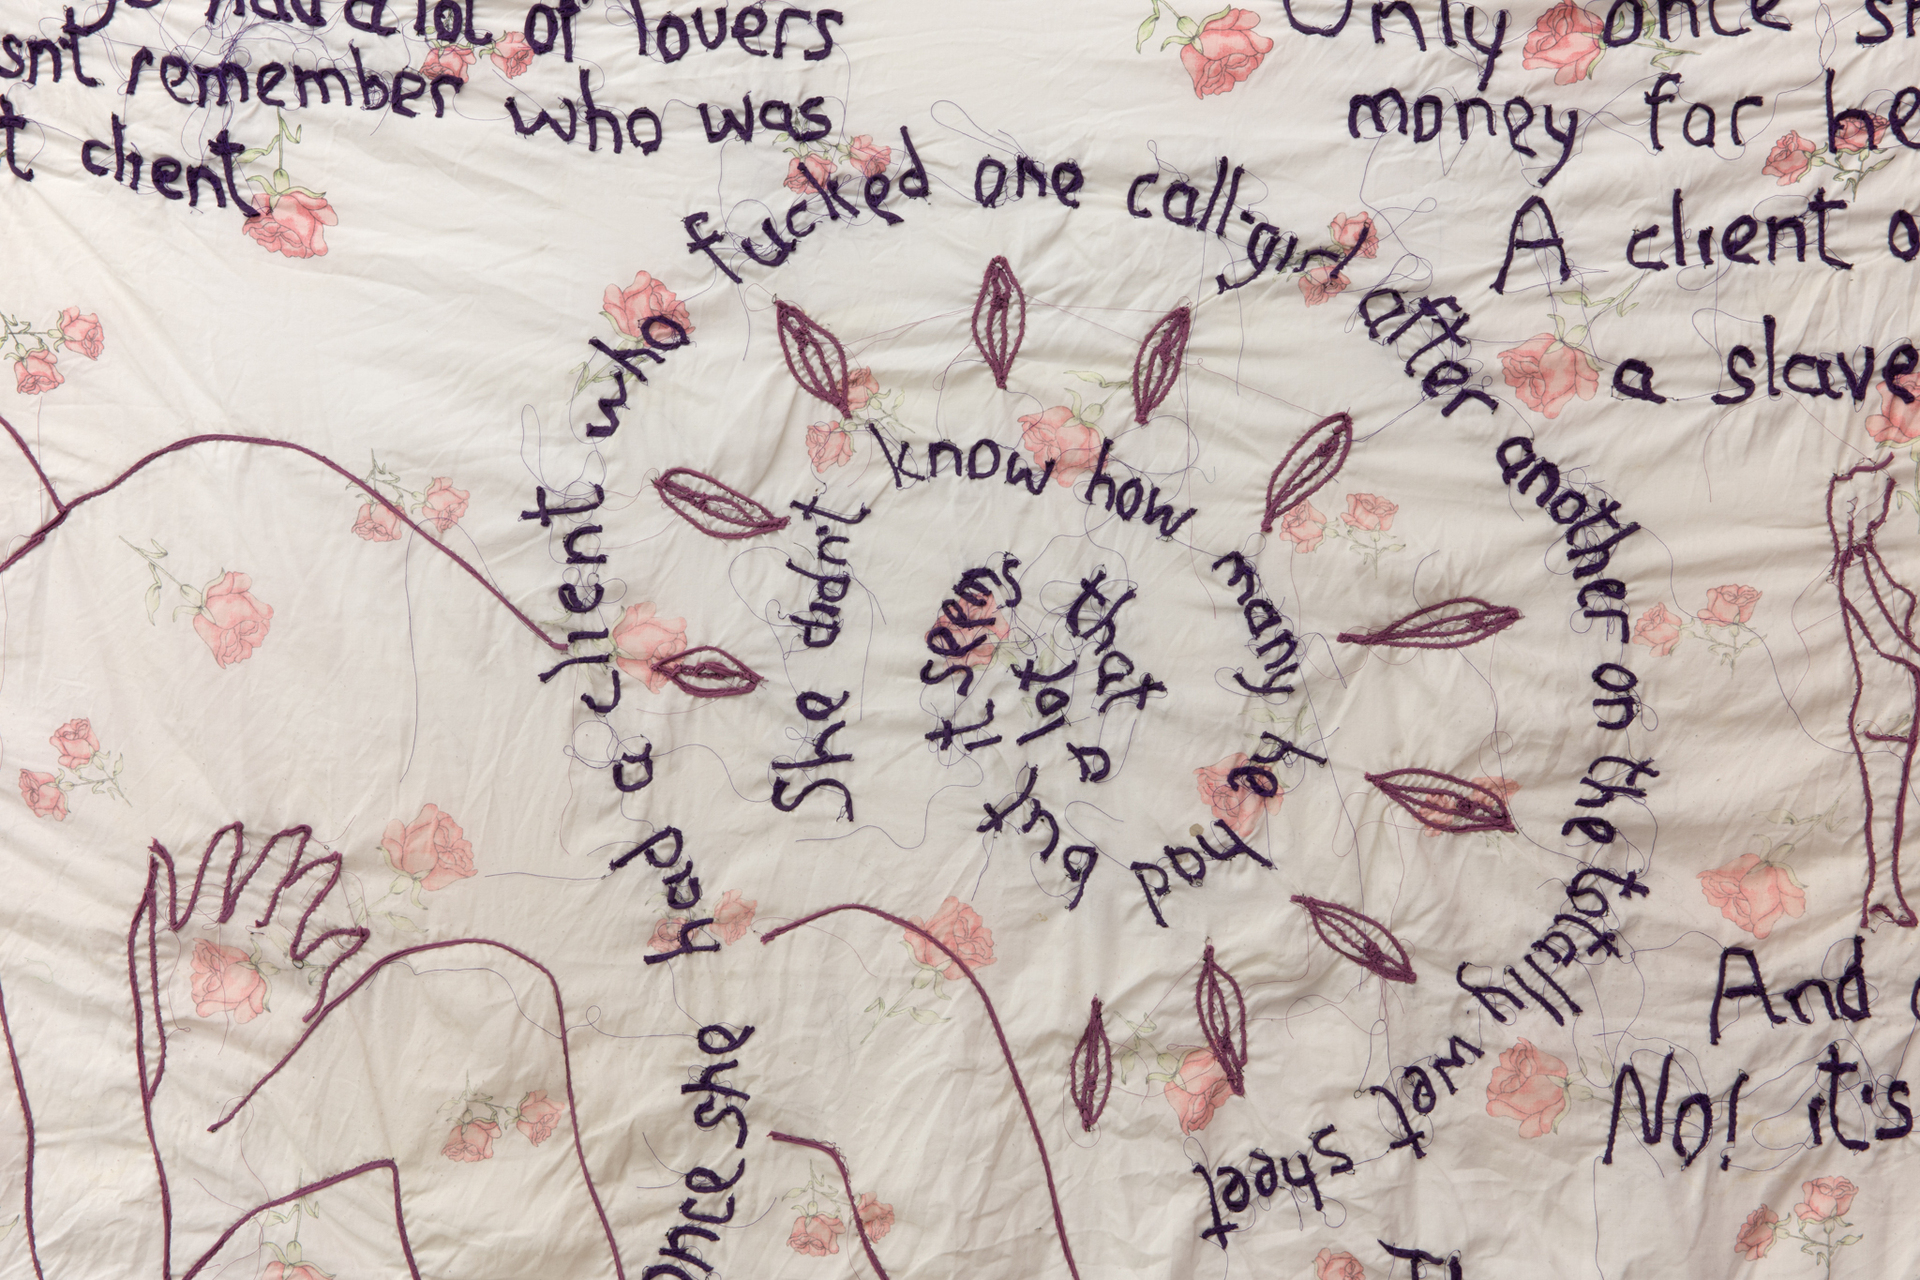 had a lot of lovers
remember who was
client
Only once
money for
A client
a slave
once she had a client who fucked one call-girl after another on the totally wet sheet
She didn't know how many he had but it seems that a lot
And
No! it's